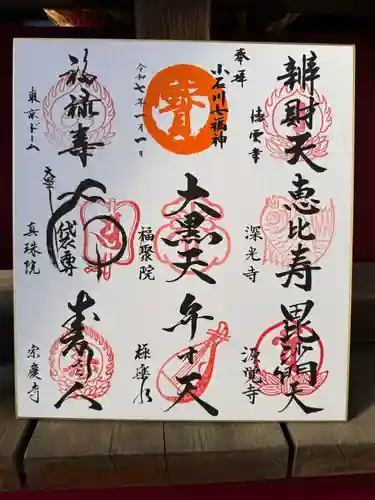 奉拝
辨財天
徳雲寺
恵比寿
深光寺
毘沙門天
源覚寺
小石川七福神
寳
令和七年一月一日
大黒天
福聚院
弁才天
極楽水
福禄寿
東京ドーム
布袋尊
真珠院
寿老人
宗慶寺